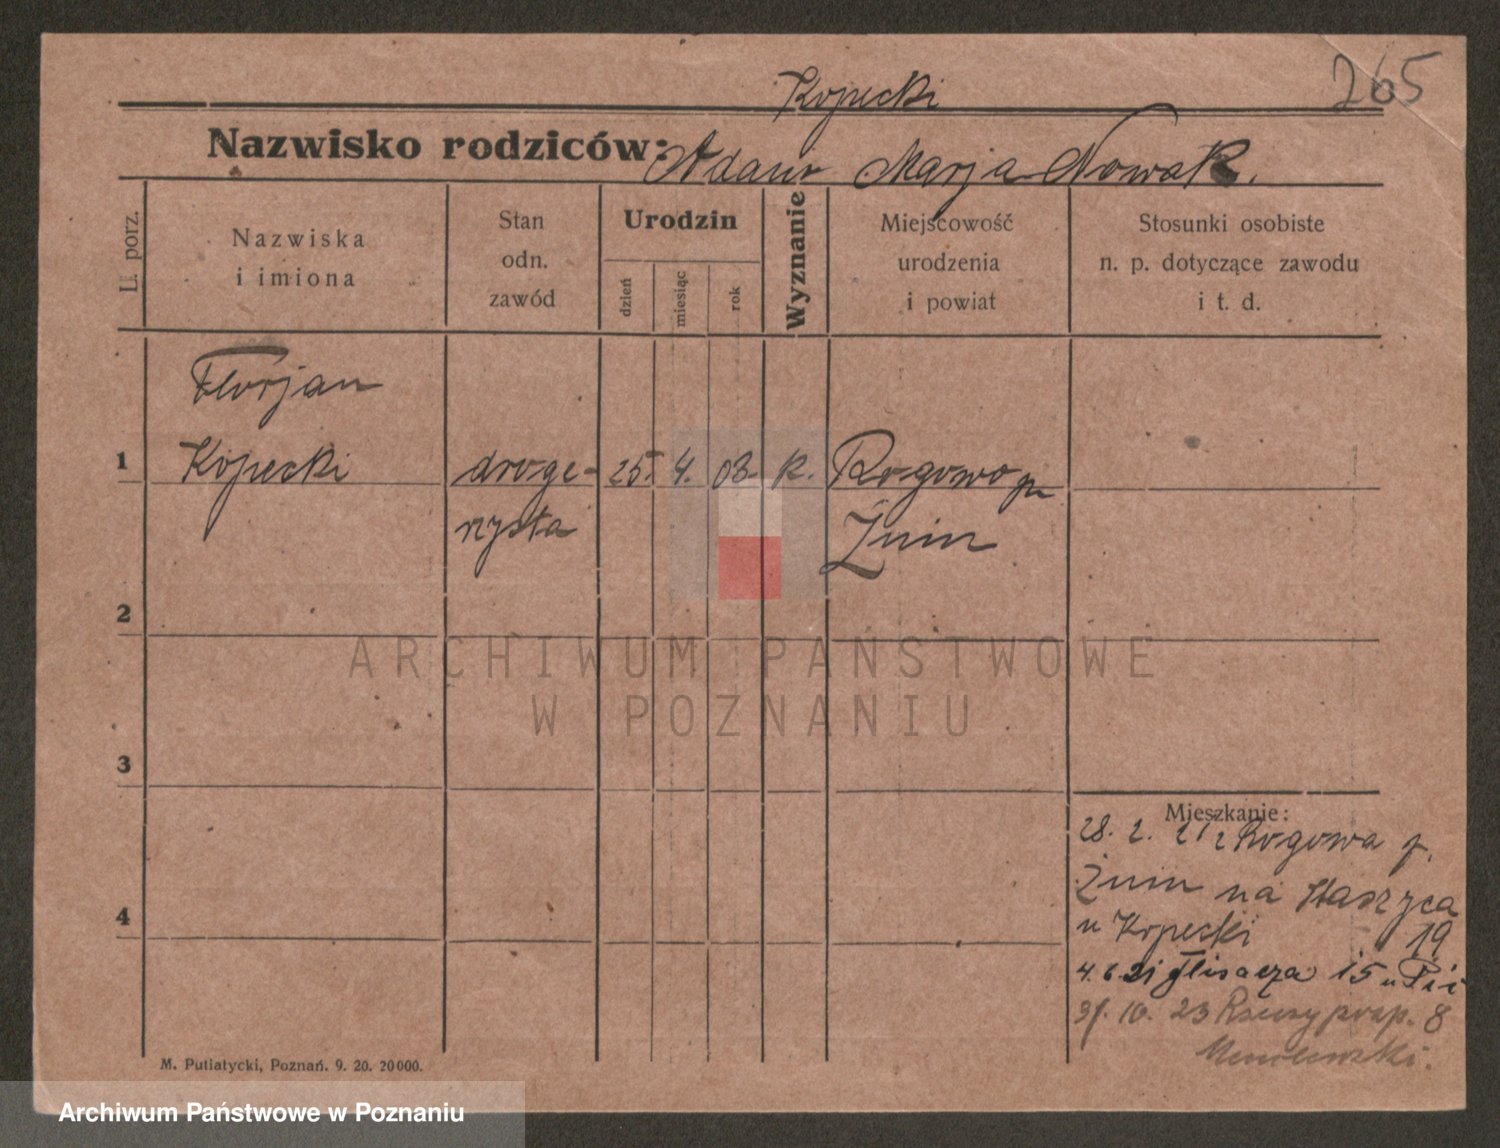 265
Kopecki
Nazwisko rodziców: Adam Marja Nowak.
Ll. porz.
Nazwiska
i imiona
Stan
odn.
zawód
Urodzin
dzień
miesiąc
rok
Wyznanie
Miejscowość
urodzenia
i powiat
Stosunki osobiste
n. p. dotyczące zawodu
i t. d.
Florjan
1 Kopecki droge- 25. 4. 08 k. Rogowo p
rzysta Żnin
2
3
4
ARCHIWUM PAŃSTWOWE
W POZNANIU
Mieszkanie:
28. 2. 21 z Rogowa p.
Żnin na Staszyca
u Kopecki 19
4. 6. 21 15 u
31. 10. 23 8
M. Putiatycki, Poznań. 9. 20. 20000.
Archiwum Państwowe w Poznaniu